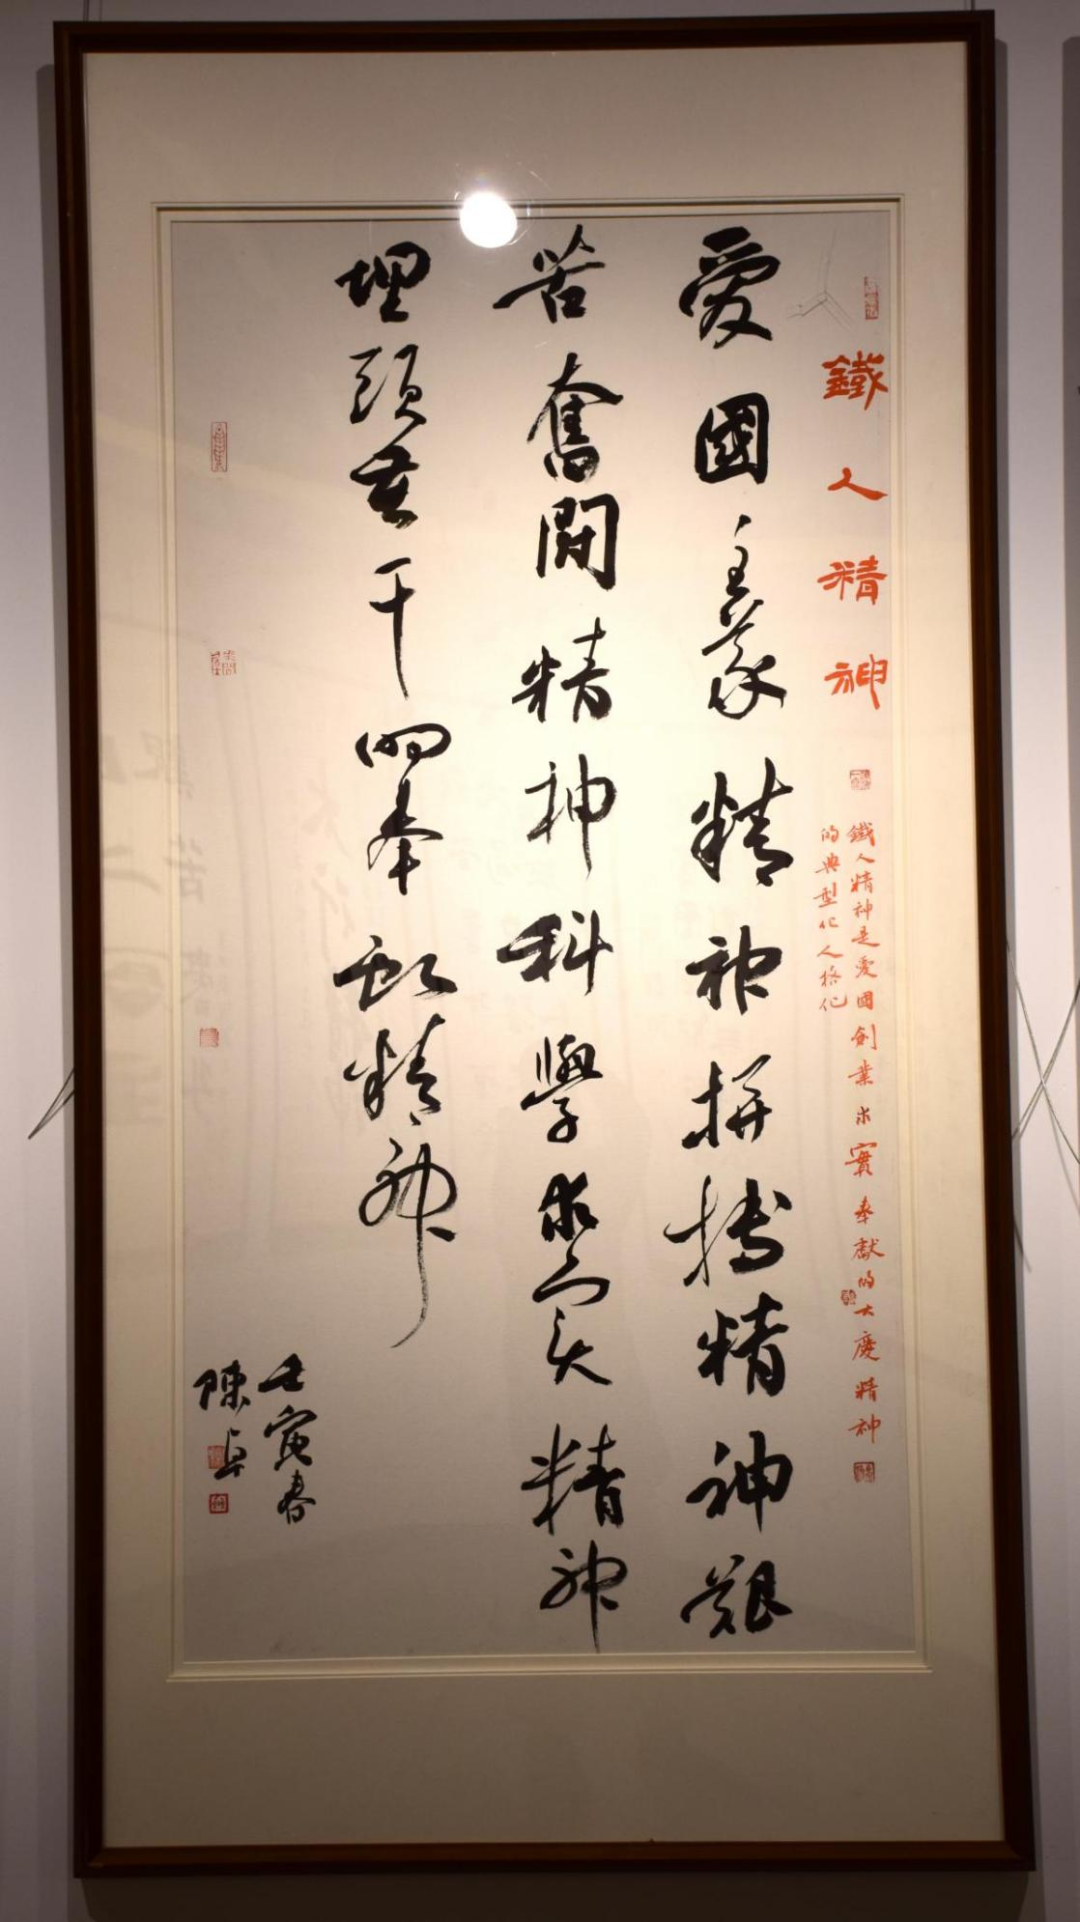 鐵人精神
鐵人精神是愛國創業求實奉獻的大慶精神
的典型化人格化
愛國主義精神拼搏精神艱
苦奮鬥精神科學求實精神
埋頭苦干的奉献精神
壬寅春
陳卓